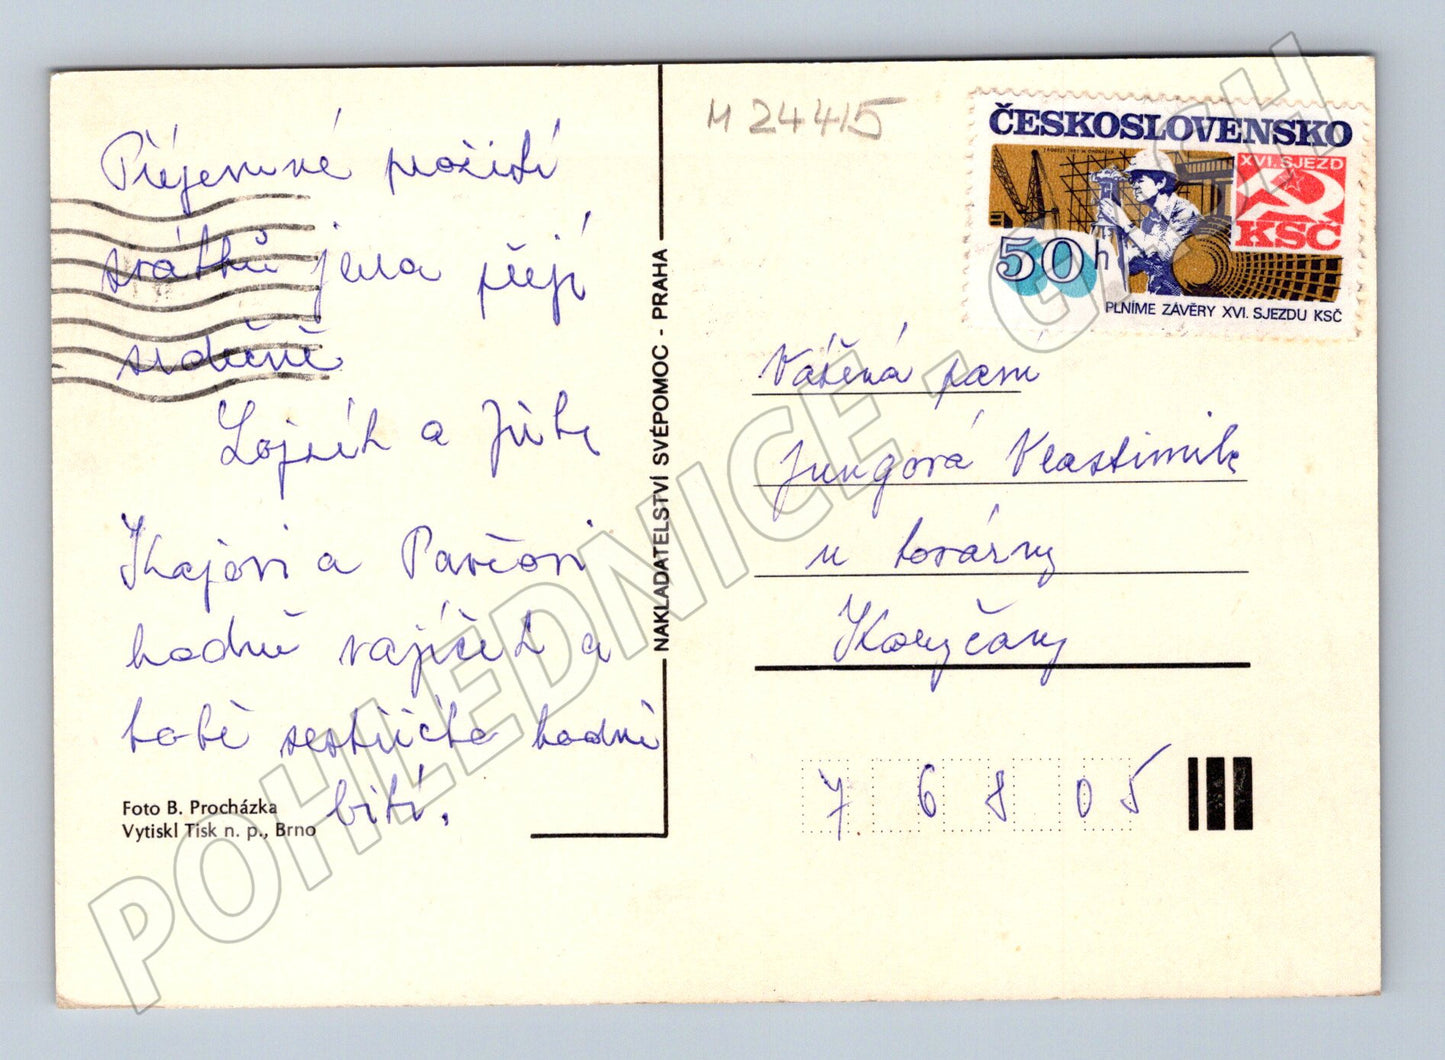 Příjemné prožití
svátků jara přejí
srdečně
Lojzík a Jitk
Kajovi a Pavčovi
hodně vajíček a
tobě sestřičko hodně
bití.
Foto B. Procházka
Vytiskl Tisk n. p., Brno
NAKLADATELSTVÍ SVÉPOMOC - PRAHA
M 24415
ČESKOSLOVENSKO
XVI. SJEZD
KSČ
50 h
PLNÍME ZÁVĚRY XVI. SJEZDU KSČ
Vážená paní
Jungová Vlastimila
u továrny
Koryčany
768 05
POHLEDNICE - CZECH